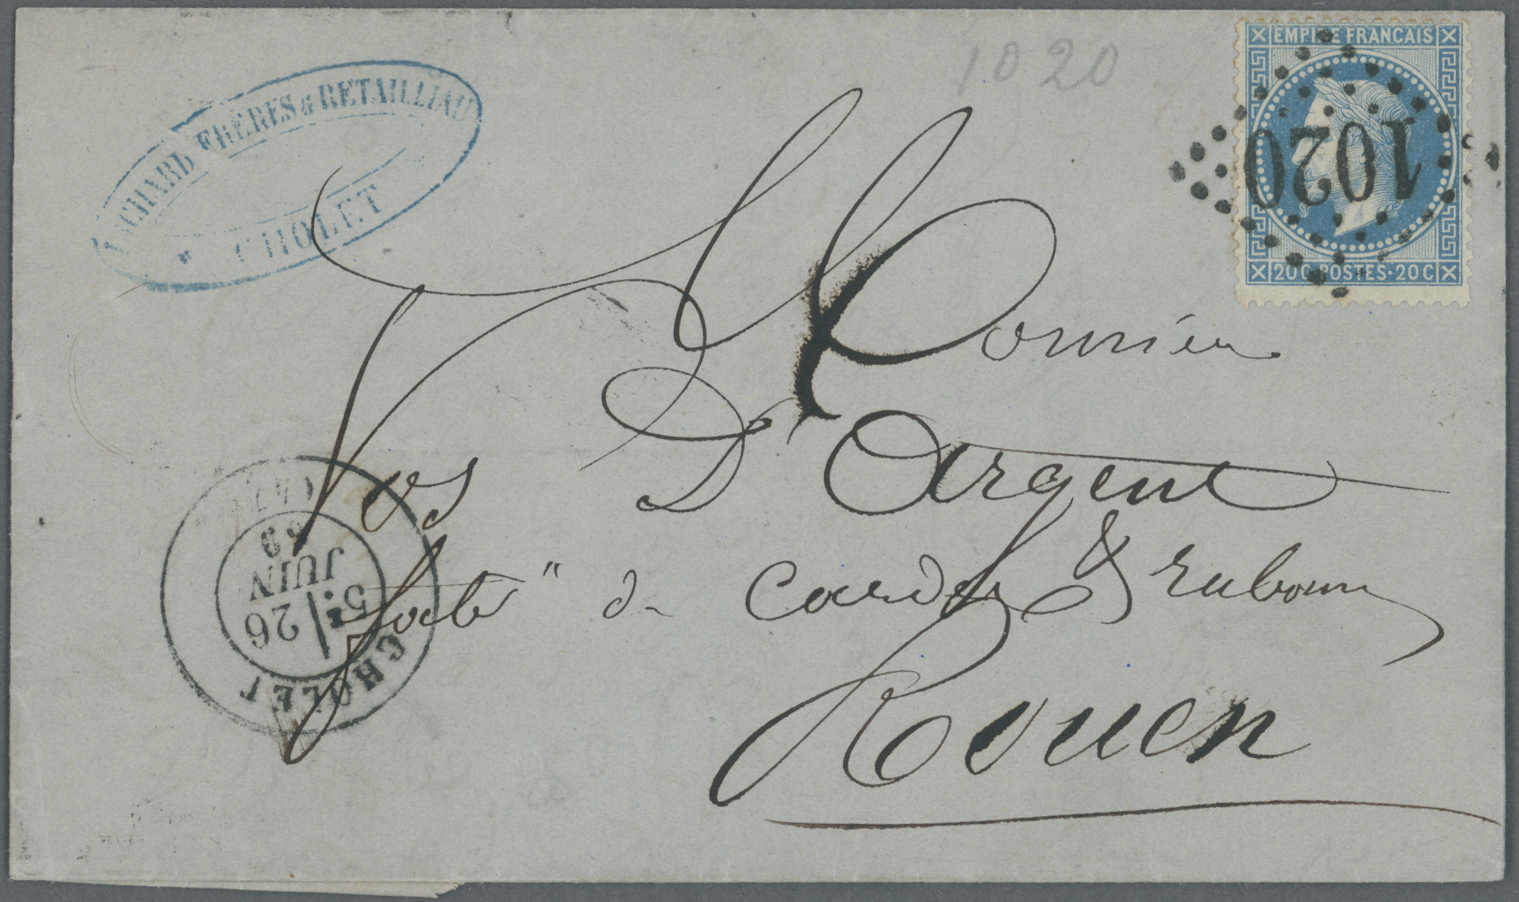 1020
EMPIRE FRANÇAIS
1020
20 C · POSTES · 20 C
FRÈRES & RETAILLIAU
CHOLET
Monsieur
Vos D'Argent
fabt" de cardes & rubans
Rouen
CHOLET
5E 26
JUIN
69